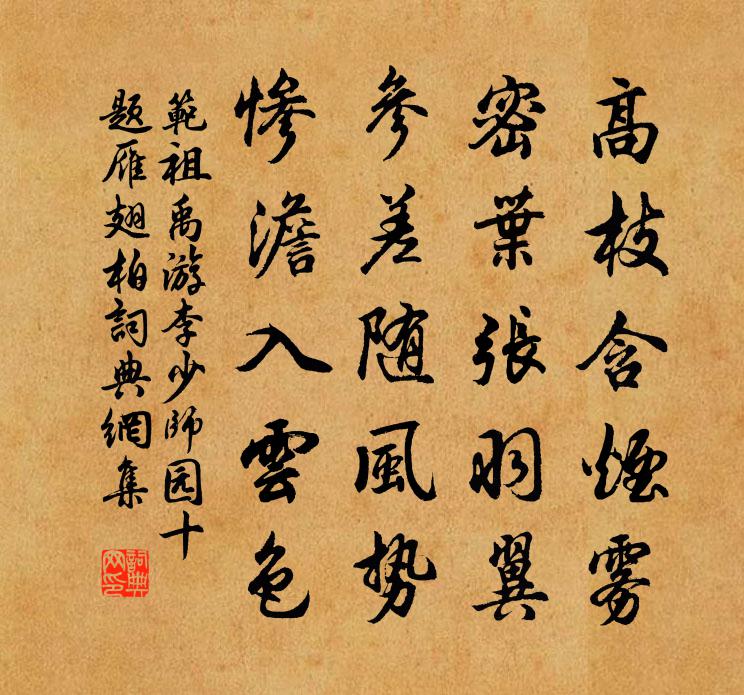 高枝含煙雾
密葉張羽翼
參差随風勢
慘澹入雲色
範祖禹游李少师园十
题雁翅柏詞典網集
詞典
网印